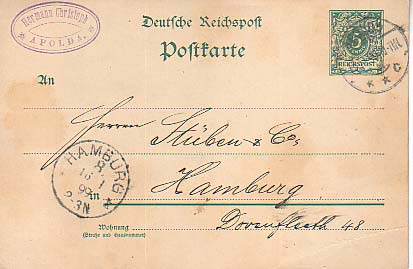 Hermann Christoph
APOLDA.
Deutsche Reichspost
Postkarte
5
REICHSPOST
An
Herren Stüben & Co,
HAMBURG
8.
16 1
99
2-3N
in Hamburg
Wohnung
(Straße und Hausnummer)
Dovenfleth 48